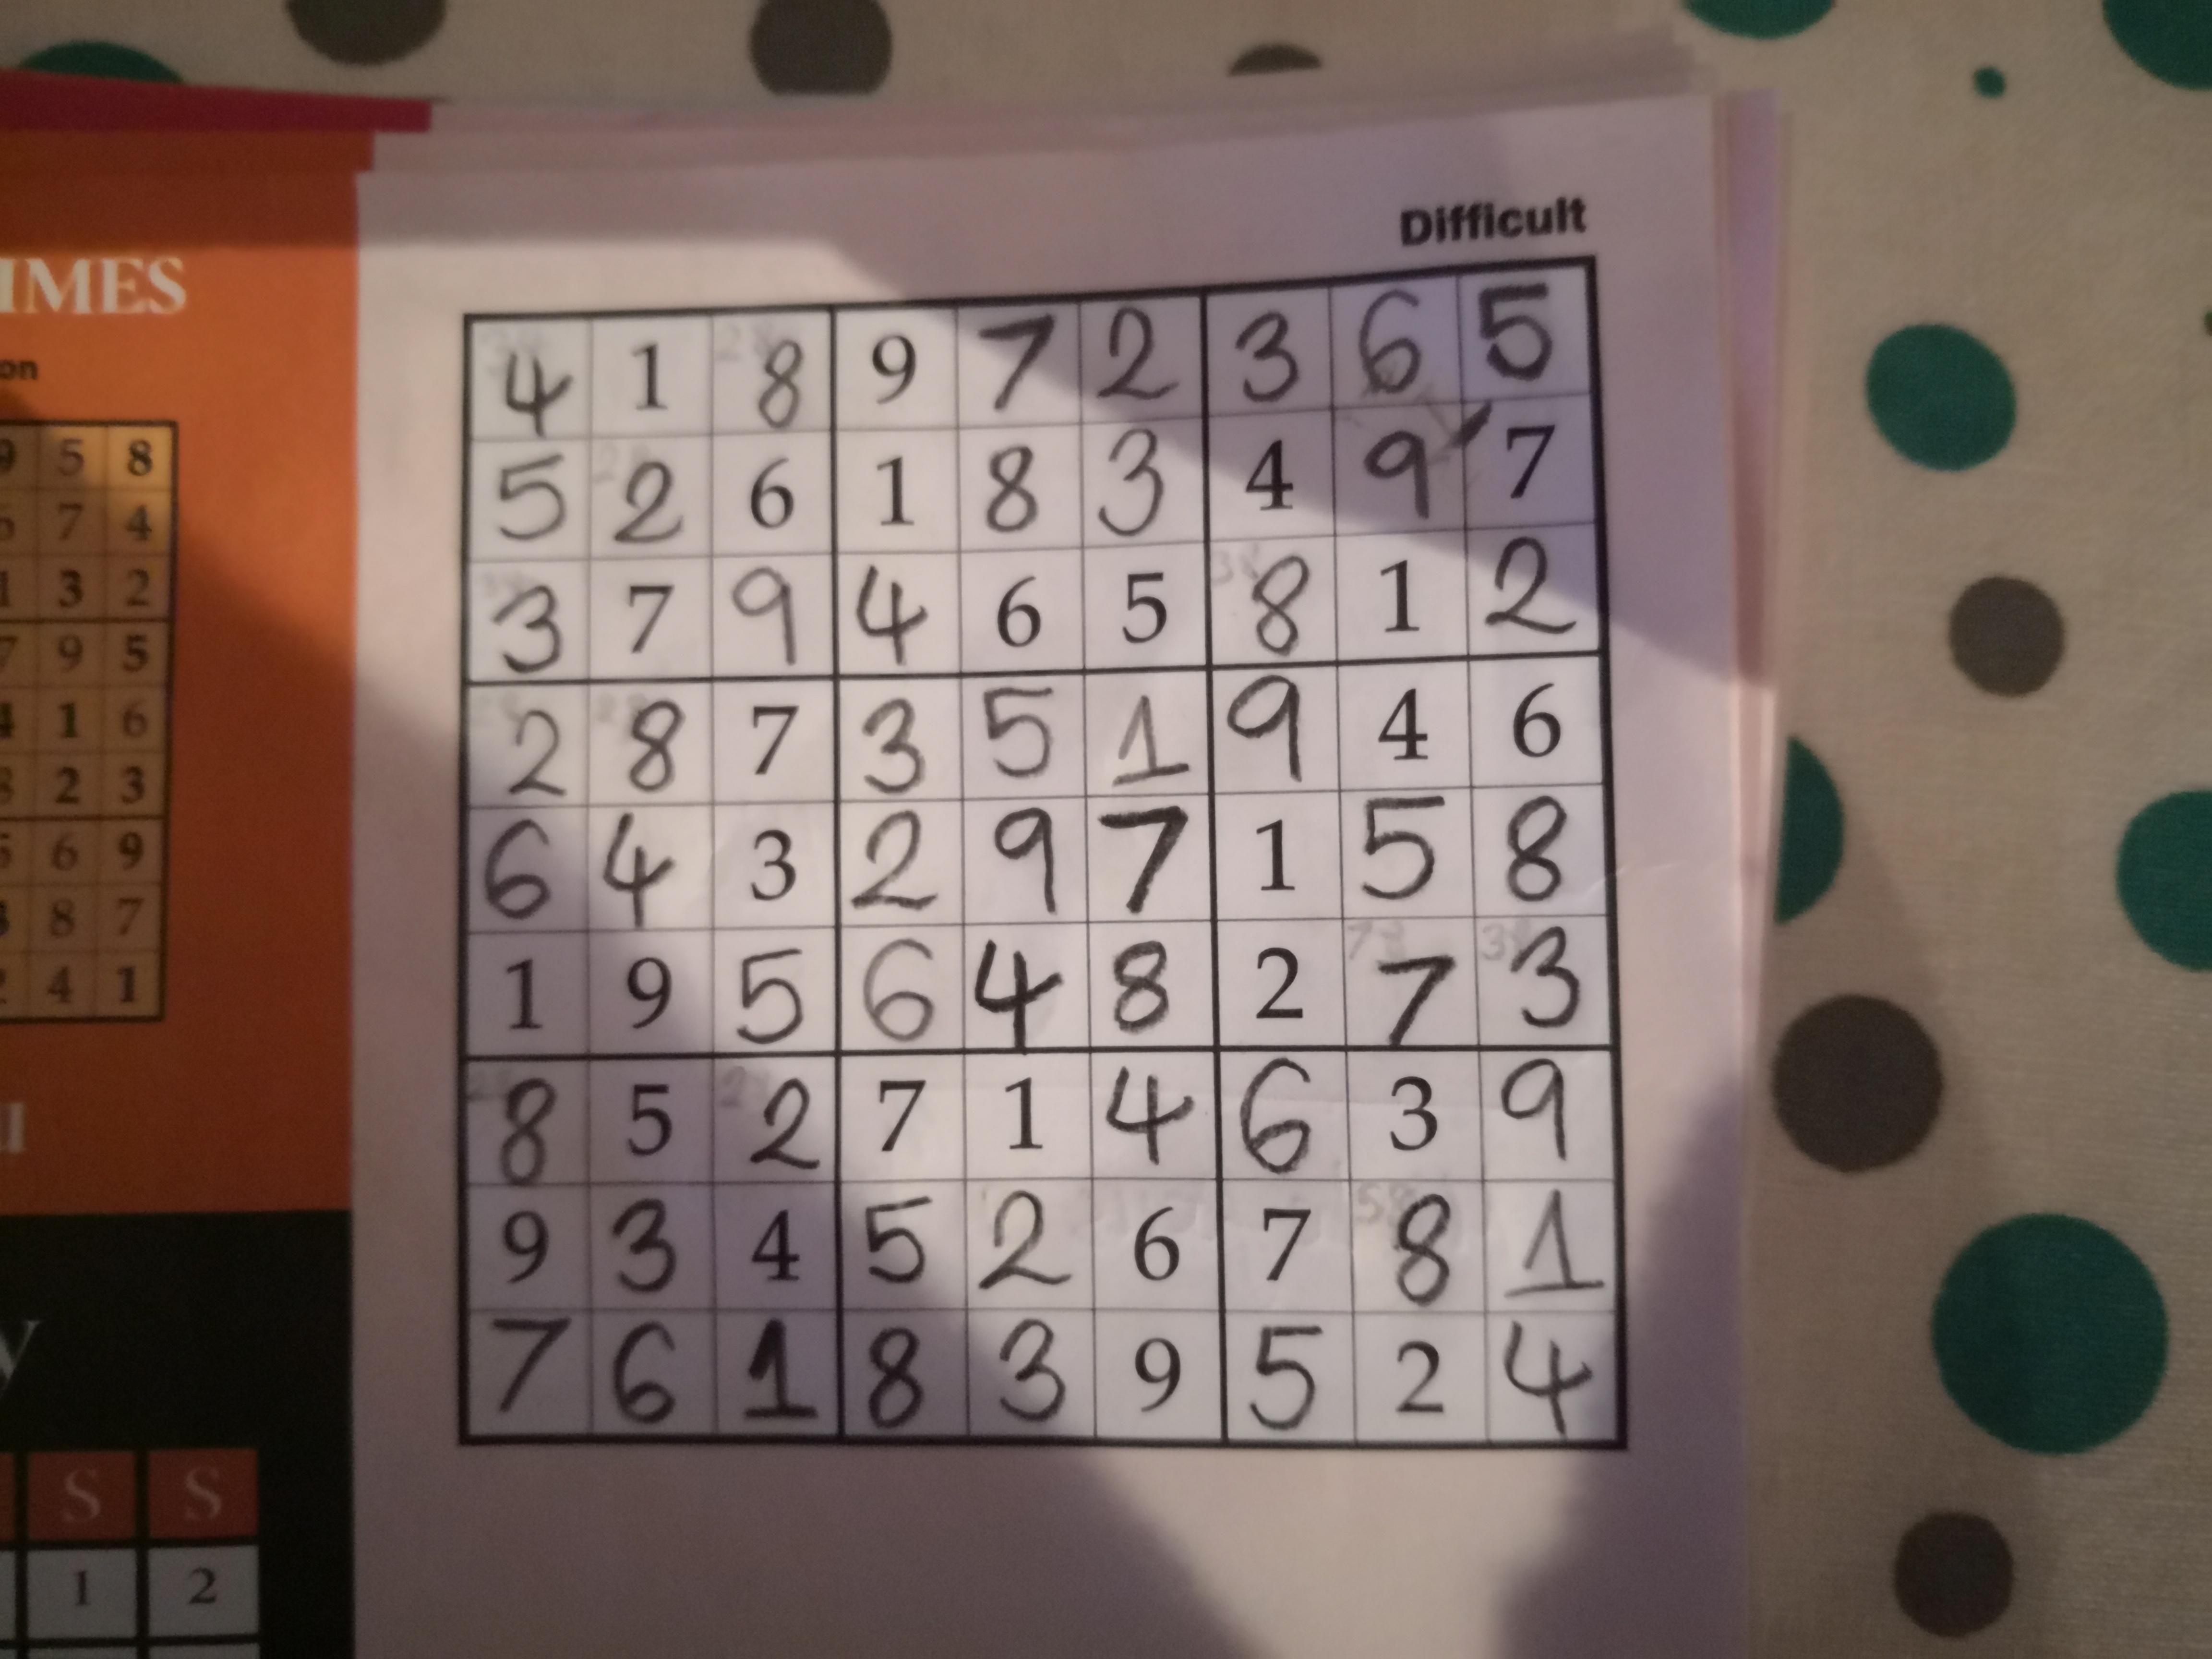 Difficult
IMES
on
9 5 8
7 4
1 3 2
7 9 5
4 1 6
8 2 3
6 9
8 7
2 4 1
S S
1 2
4 1 8 9 7 2 3 6 5
5 2 6 1 8 3 4 9 7
3 7 9 4 6 5 8 1 2
2 8 7 3 5 1 9 4 6
6 4 3 2 9 7 1 5 8
1 9 5 6 4 8 2 7 3
8 5 2 7 1 4 6 3 9
9 3 4 5 2 6 7 8 1
7 6 1 8 3 9 5 2 4